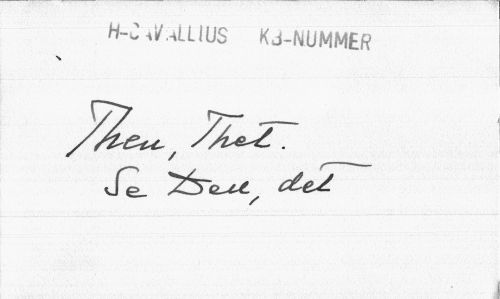 H-CAVALLIUS KB-NUMMER
Then, Thet.
Se Den, det